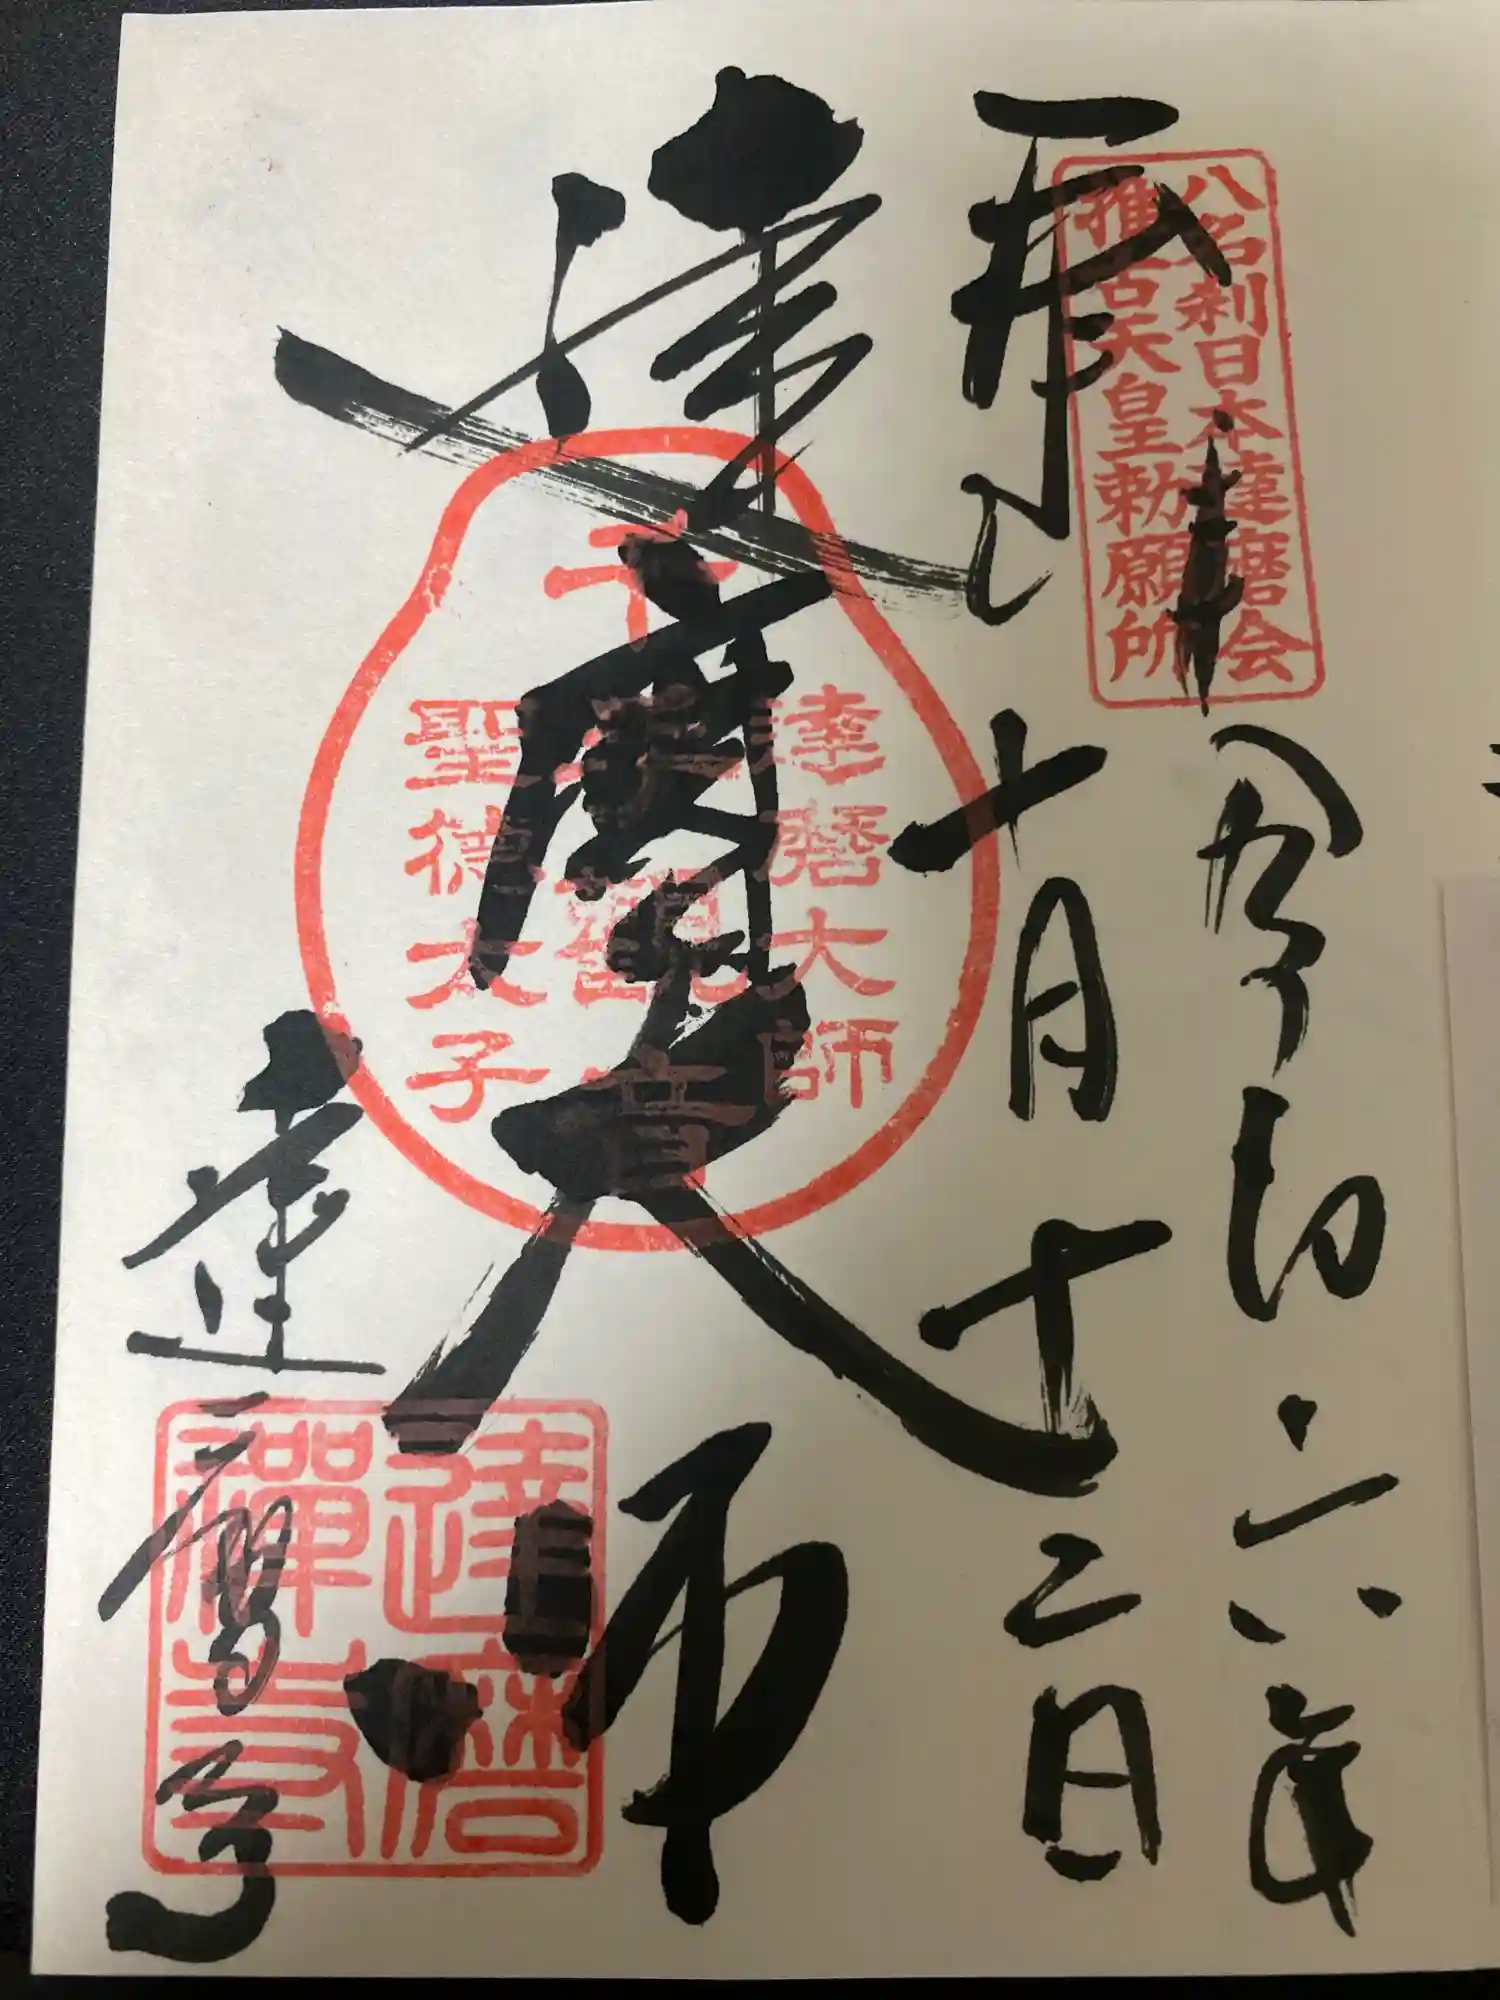 八名刹日本達磨会
推古天皇勅願所
令和六年
十月十二日
達磨大師
達磨大師
千手観音
聖徳太子
達磨寺
達磨
禪寺